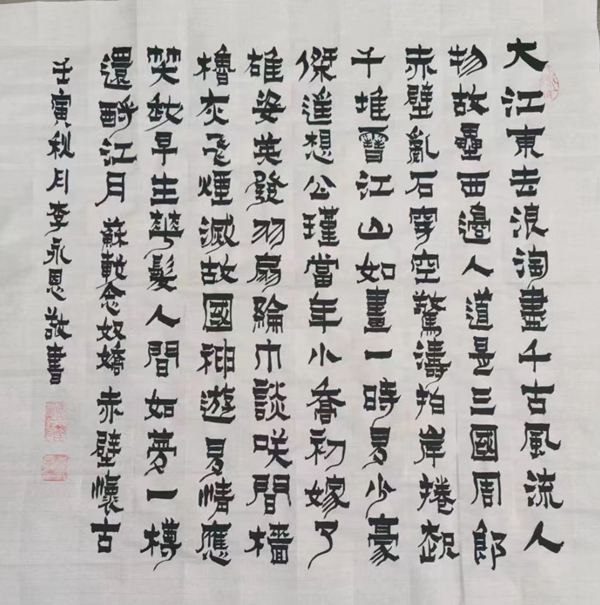 大江東去浪淘盡千古風流人
物故壘西邊人道是三國周郎
赤壁亂石穿空驚濤拍岸捲起
千堆雪江山如畫一時多少豪
傑遙想公瑾當年小喬初嫁了
雄姿英發羽扇綸巾談咲間檣
櫓灰飛煙滅故國神遊多情應
笑我早生華髮人間如夢一樽
還酹江月 蘇軾念奴嬌 赤壁懷古
壬寅秋月李永恩敬書